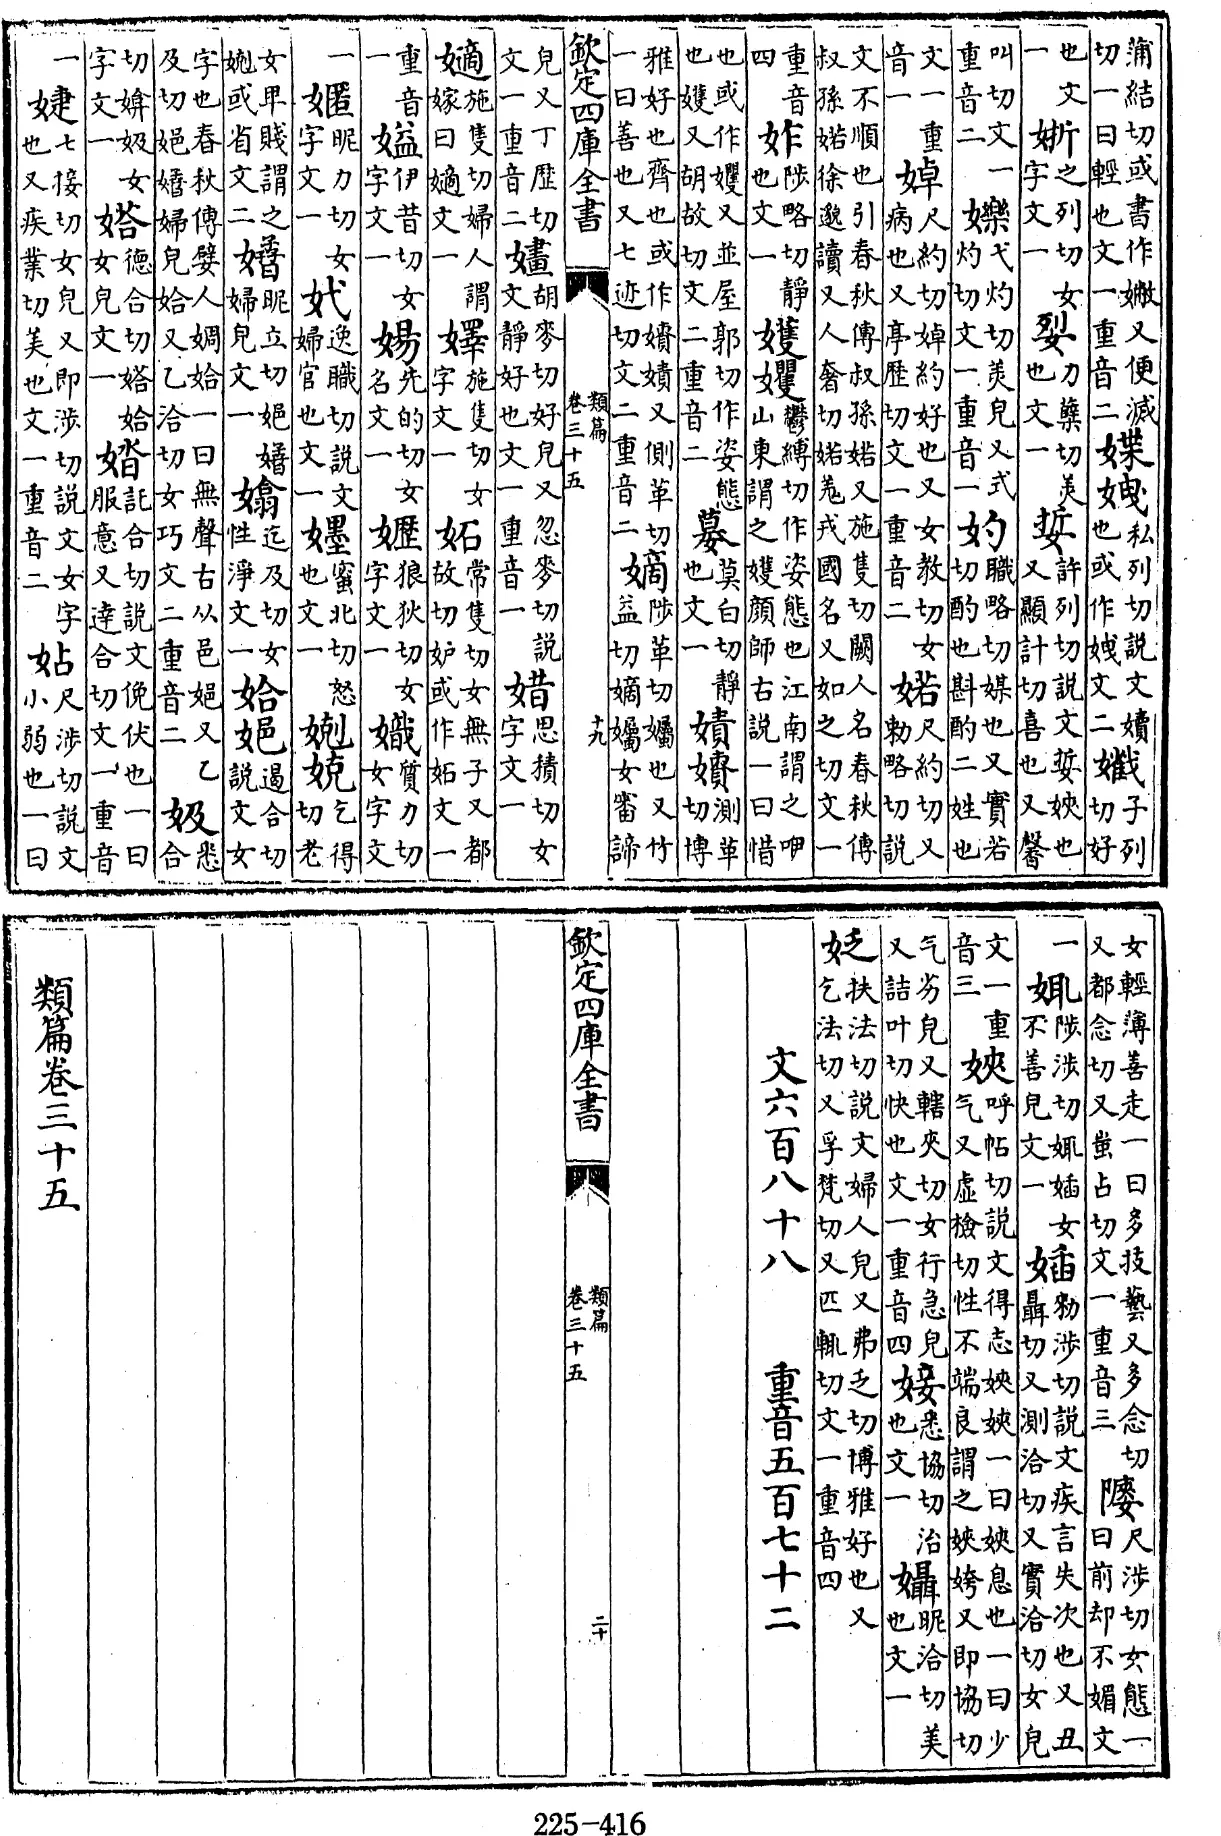 蒲結切或書作嫳又便滅
切一曰輕也文一重音二
媟
私列切說文嬻
也或作媟文二
子列
切好
也文
一
之列切女
字文一
力櫱切美
也文一
娎
許列切說文娎也
又顯計切喜也又馨
叫切文一
重音二
弋灼切美皃又式
灼切文一重音一
妁
職略切媒也又實若
切酌也斟酌二姓也
文一重
音一
婥
尺約切婥約好也又女教切女
病也又亭歷切文一重音二
婼
尺約切又
勑略切說
文不順也引春秋傳叔孫婼又施隻切闕人名春秋傳
叔孫婼徐邈讀又人奢切婼羌戎國名又如之切文一
重音
四
陟略切靜
也文一
嬳
鬱縛切作姿態也江南謂之呷
山東謂之嬳顏師古說一曰惜
也或作又並屋郭切作姿態
也嬳又胡故切文二重音二
莫白切靜
也文一
嫧
測革
切博
雅好也齊也或作嫧又側革切
一曰善也又七迹切文二重音二
嫡
陟革切孎也又竹
益切嫡孎女審諦
欽定四庫全書
類篇
卷三十五
十九
皃又丁歷切
文一重音二
嫿
胡麥切好皃又忽麥切說
文靜好也文一重音一
思積切女
字文一
施隻切婦人謂
嫁曰文一
施隻切女
字文一
妬
常隻切女無子又都
故切妒或作妬文一
重音
一
伊昔切女
字文一
先的切女
名文一
狼狄切女
字文一
質力切
女字文
一
嫟
昵力切女
字文一
妷
逸職切說文
婦官也文一
蜜北切怒
也文一
乞得
切老
女卑賤謂之
或省文二
昵立切
婦皃文一
迄及切女
性淨文一
姶
遏合切
說文女
字也春秋傳嬖人婤姶一曰無聲右从邑又乙
及切婦皃姶又乙洽切女巧文二重音二
悉
合
切媕女
字文一
德合切姶
女皃文一
託合切說文俛伏也一曰
服意又達合切文一重音
一
婕
七接切女皃又即涉切說文女字
也又疾業切美也文一重音二
尺涉切說文
小弱也一曰
女輕薄善走一曰多技藝又多念切
又都念切又蚩占切文一重音三
尺涉切女態一
曰前却不媚文
一
陟涉切女
不善皃文一
勑涉切說文疾言失次也又丑
聶切又測洽切又實洽切女皃
文一重
音三
呼帖切說文得志一曰息也一曰少
气又虛檢切性不端良謂之姱又即協切
气劣皃又轄夾切女行急皃
又詰叶切快也文一重音四
悉協切治
也文一
昵洽切美
也文一
扶法切說文婦人皃又弗乏切博雅好也又
乞法切又孚梵切又匹輒切文一重音四
文六百八十八　重音五百七十二
欽定四庫全書
類篇
卷三十五
二十
類篇卷三十五
225-416